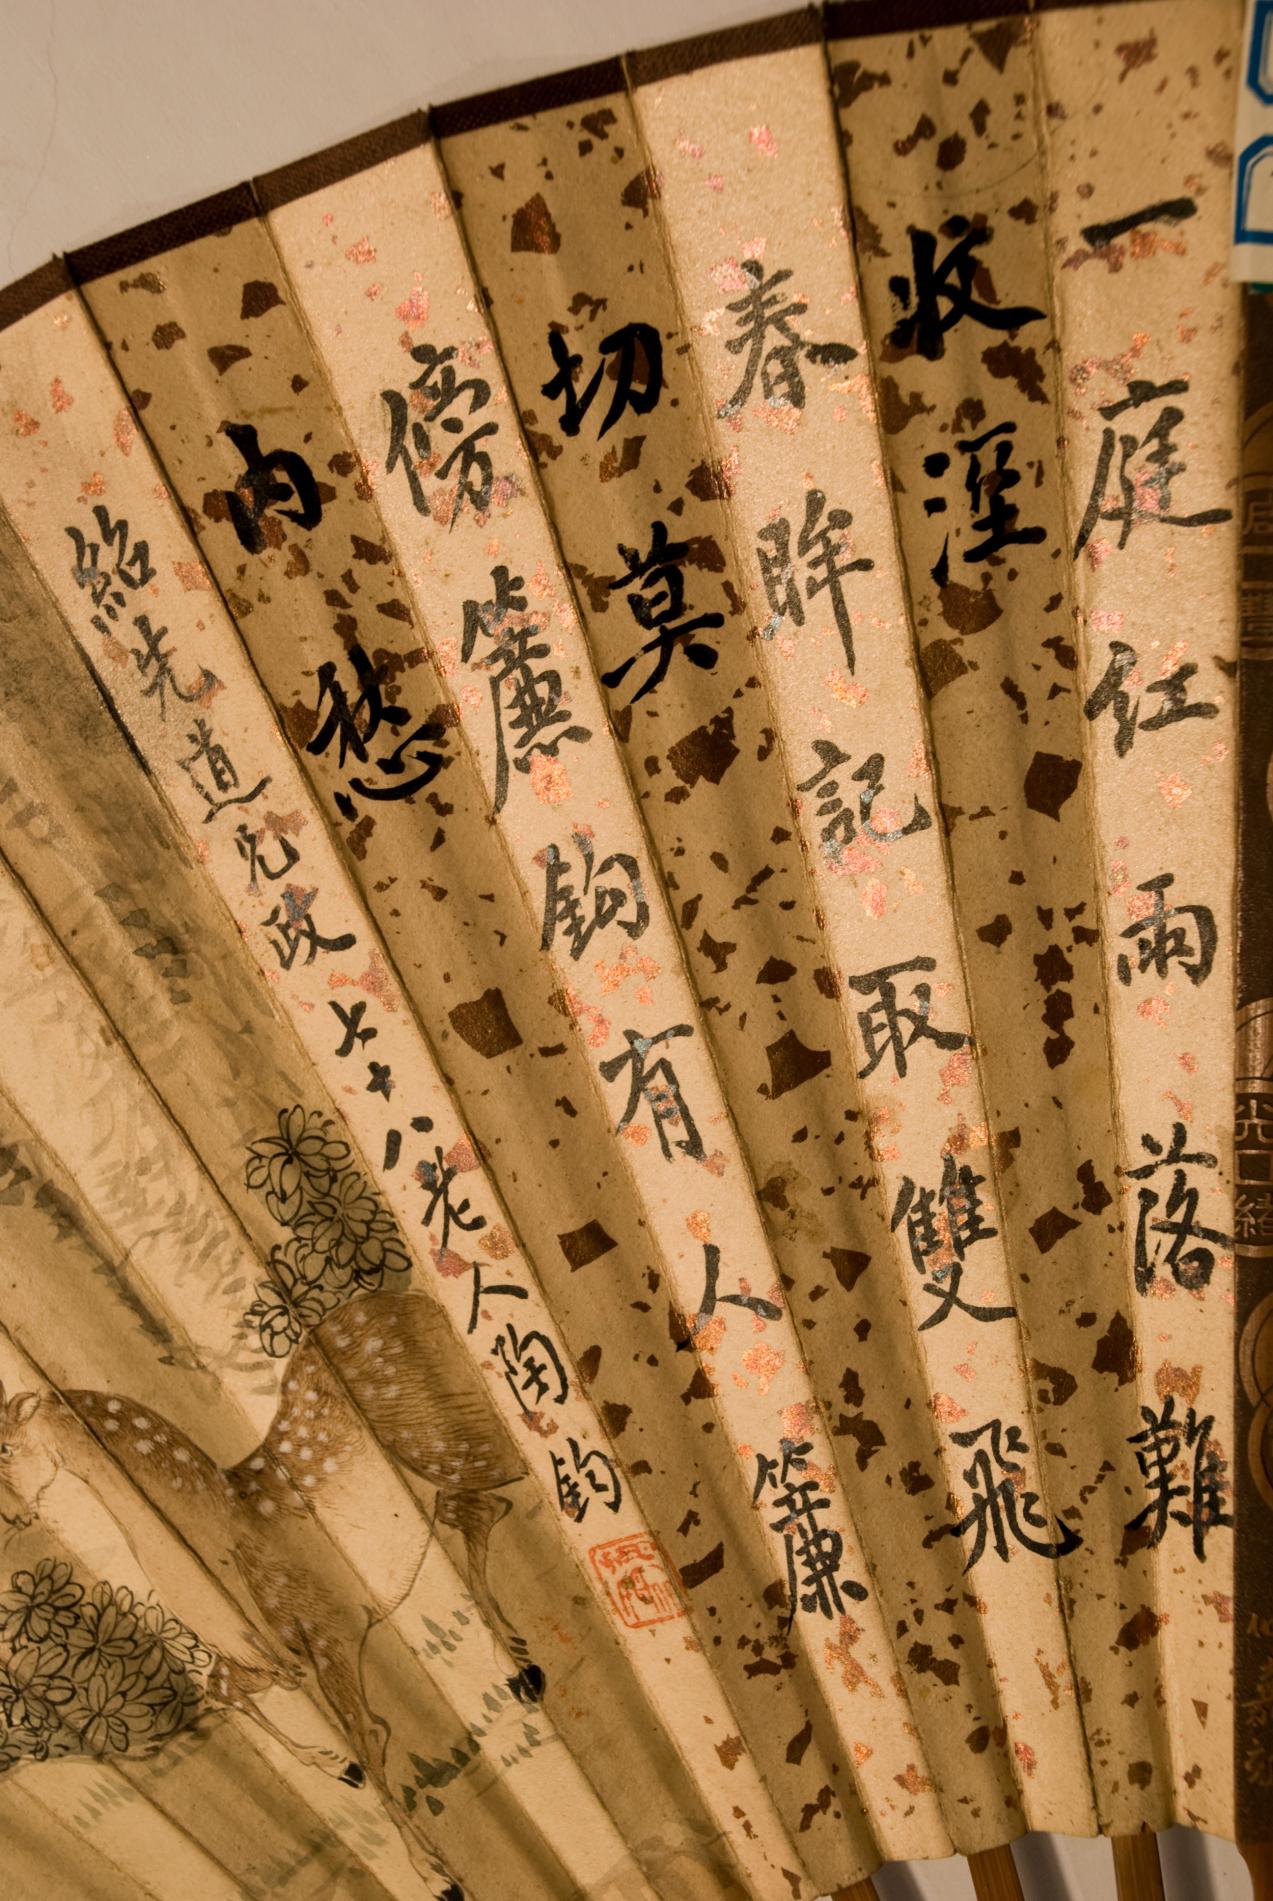 一庭紅雨落難
收溼
春眸記取雙飛
切莫
傍簾鉤有人簾
內愁
紹先道兄政 七十八老人陶鈞